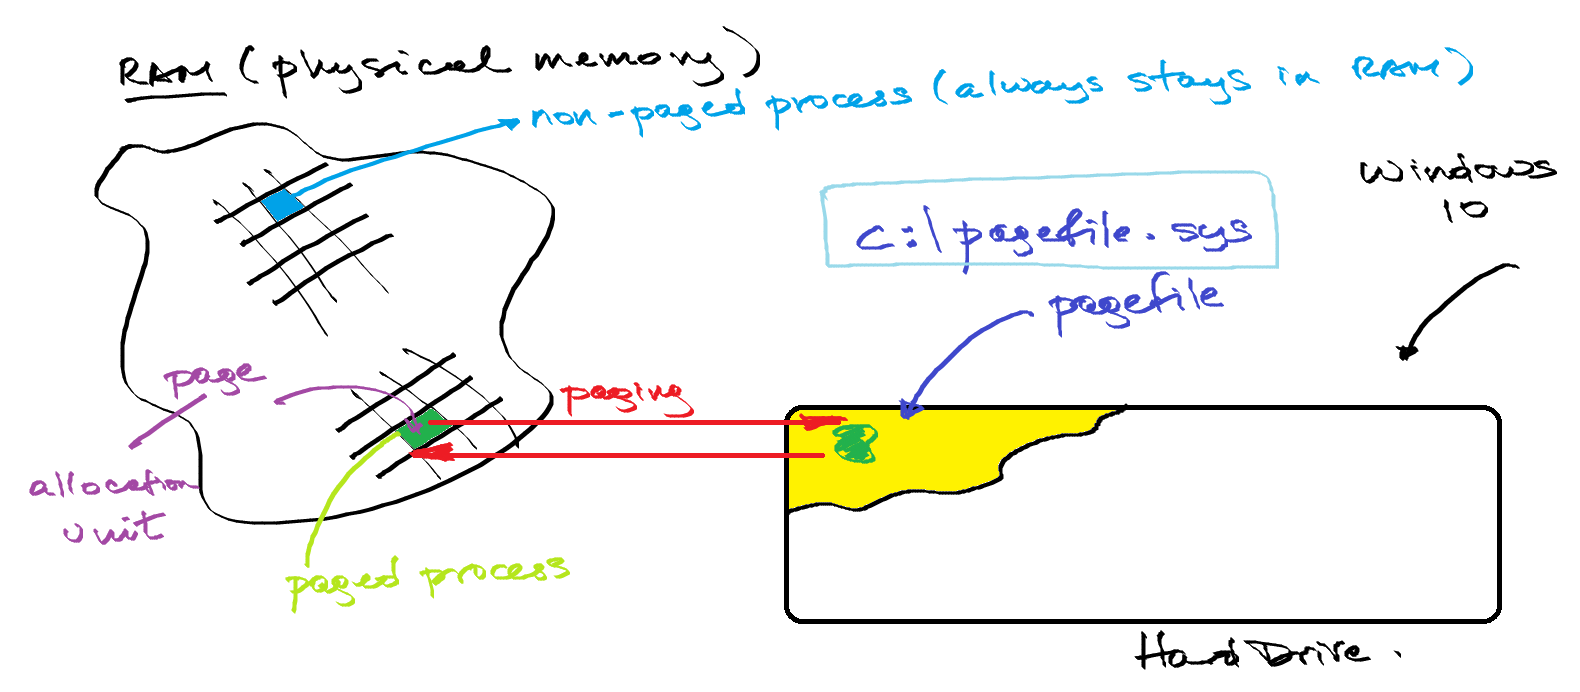 RAM (physical memory)
non-paged process (always stays in RAM)
Windows
10
c:\pagefile.sys
pagefile
page
paging
allocation
unit
paged process
Hard Drive.